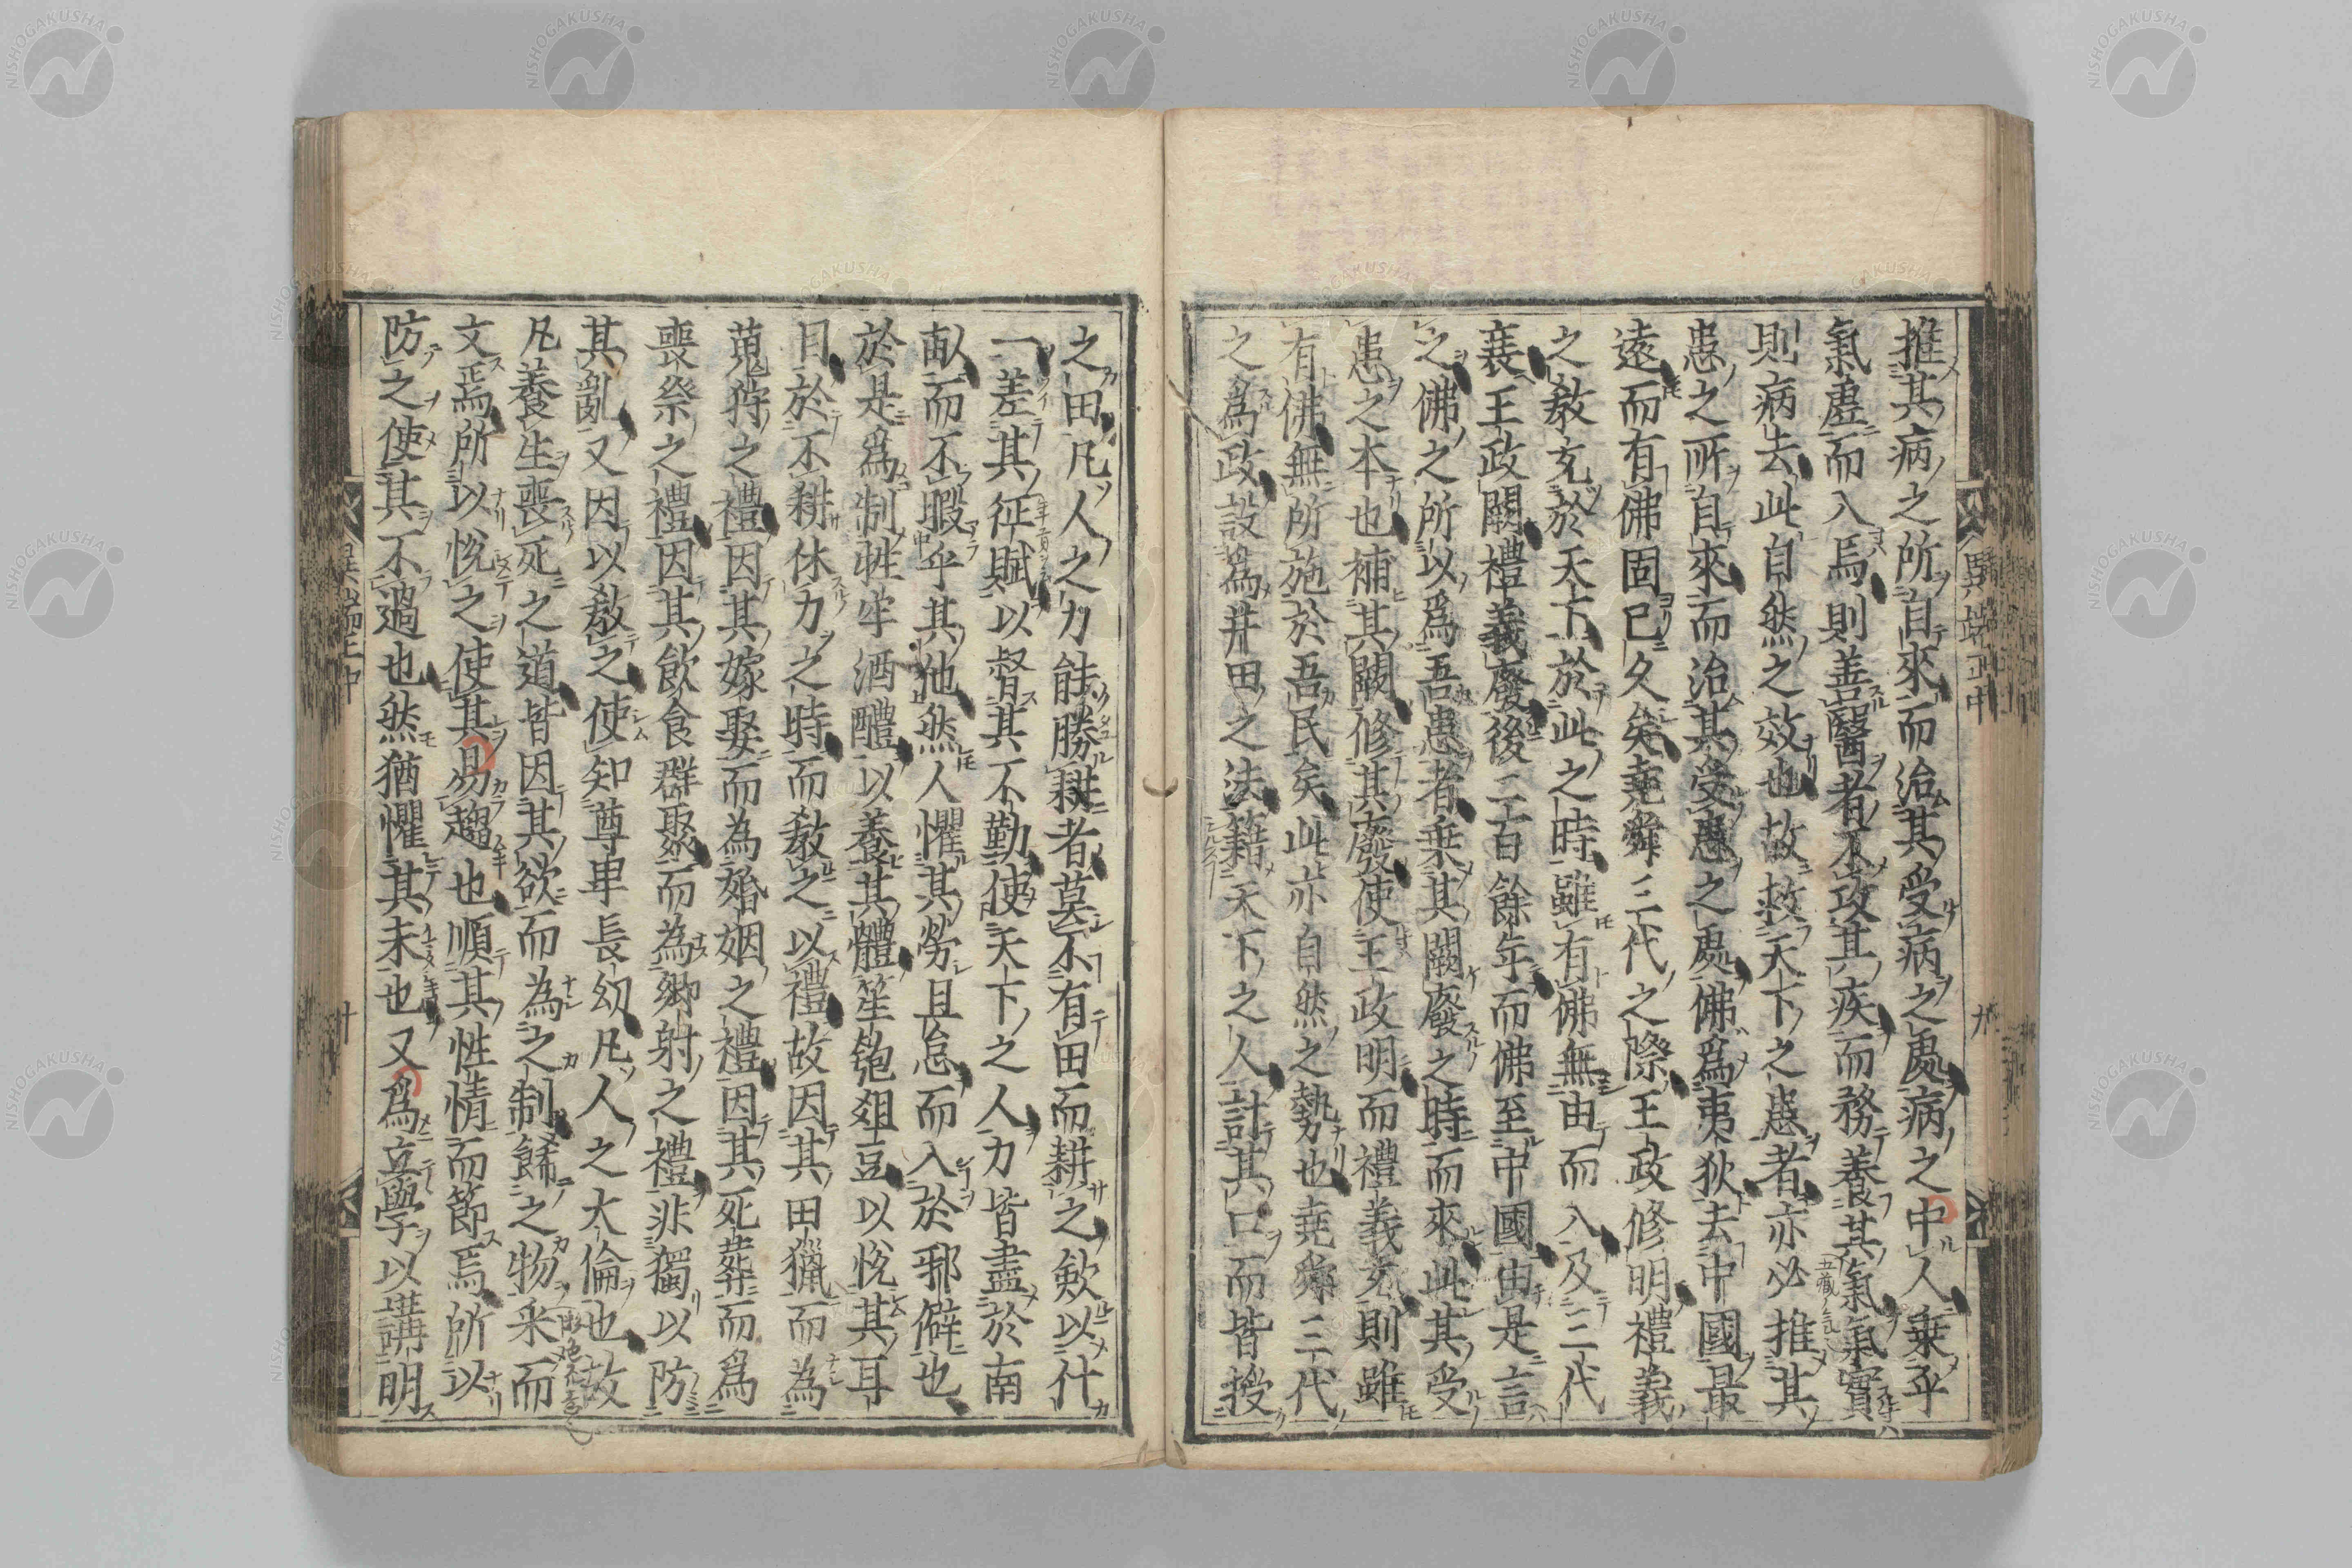 推其病之所自來而治其受病之處病之中人乘乎
氣虛而入焉則善醫者不攻其疾而務養其氣氣實
則病去此自然之效也故救天下之患者亦必推其
患之所自來而治其受患之處佛爲夷狄去中國最
遠而有佛固已久矣堯舜三代之際王政修明禮義
之教充於天下於此之時雖有佛無由而入及三代
衰王政闕禮義廢後二百餘年而佛至中國由是言
之佛之所以爲吾患者乘其闕廢之時而來此其受
患之本也補其闕修其廢使王政明而禮義充則雖
有佛無所施於吾民矣此亦自然之勢也堯舜三代
之爲政設爲井田之法籍天下之人計其口而皆授
異端正中
九
之田凡人之力能勝耕者莫不有田而耕之斂以什
一差其征賦以督其不勤使天下之人力皆盡於南
畝而不暇乎其他然人懼其勞且怠而入於邪僻也
於是爲制牲牢酒醴以養其體笙匏爼豆以悅其耳
目於不耕休力之時而教之以禮故因其田獵而為
蒐狩之禮因其嫁娶而為婚姻之禮因其死葬而爲
喪祭之禮因其飲食群聚而為鄉射之禮非獨以防
其亂又因以教之使知尊卑長幼凡人之大倫也故
凡養生喪死之道皆因其欲而為之制餙之物采而
文焉所以悅之使其易趨也順其性情而節焉所以
防之使其不過也然猶懼其未也又爲立學以講明
異端正中
十